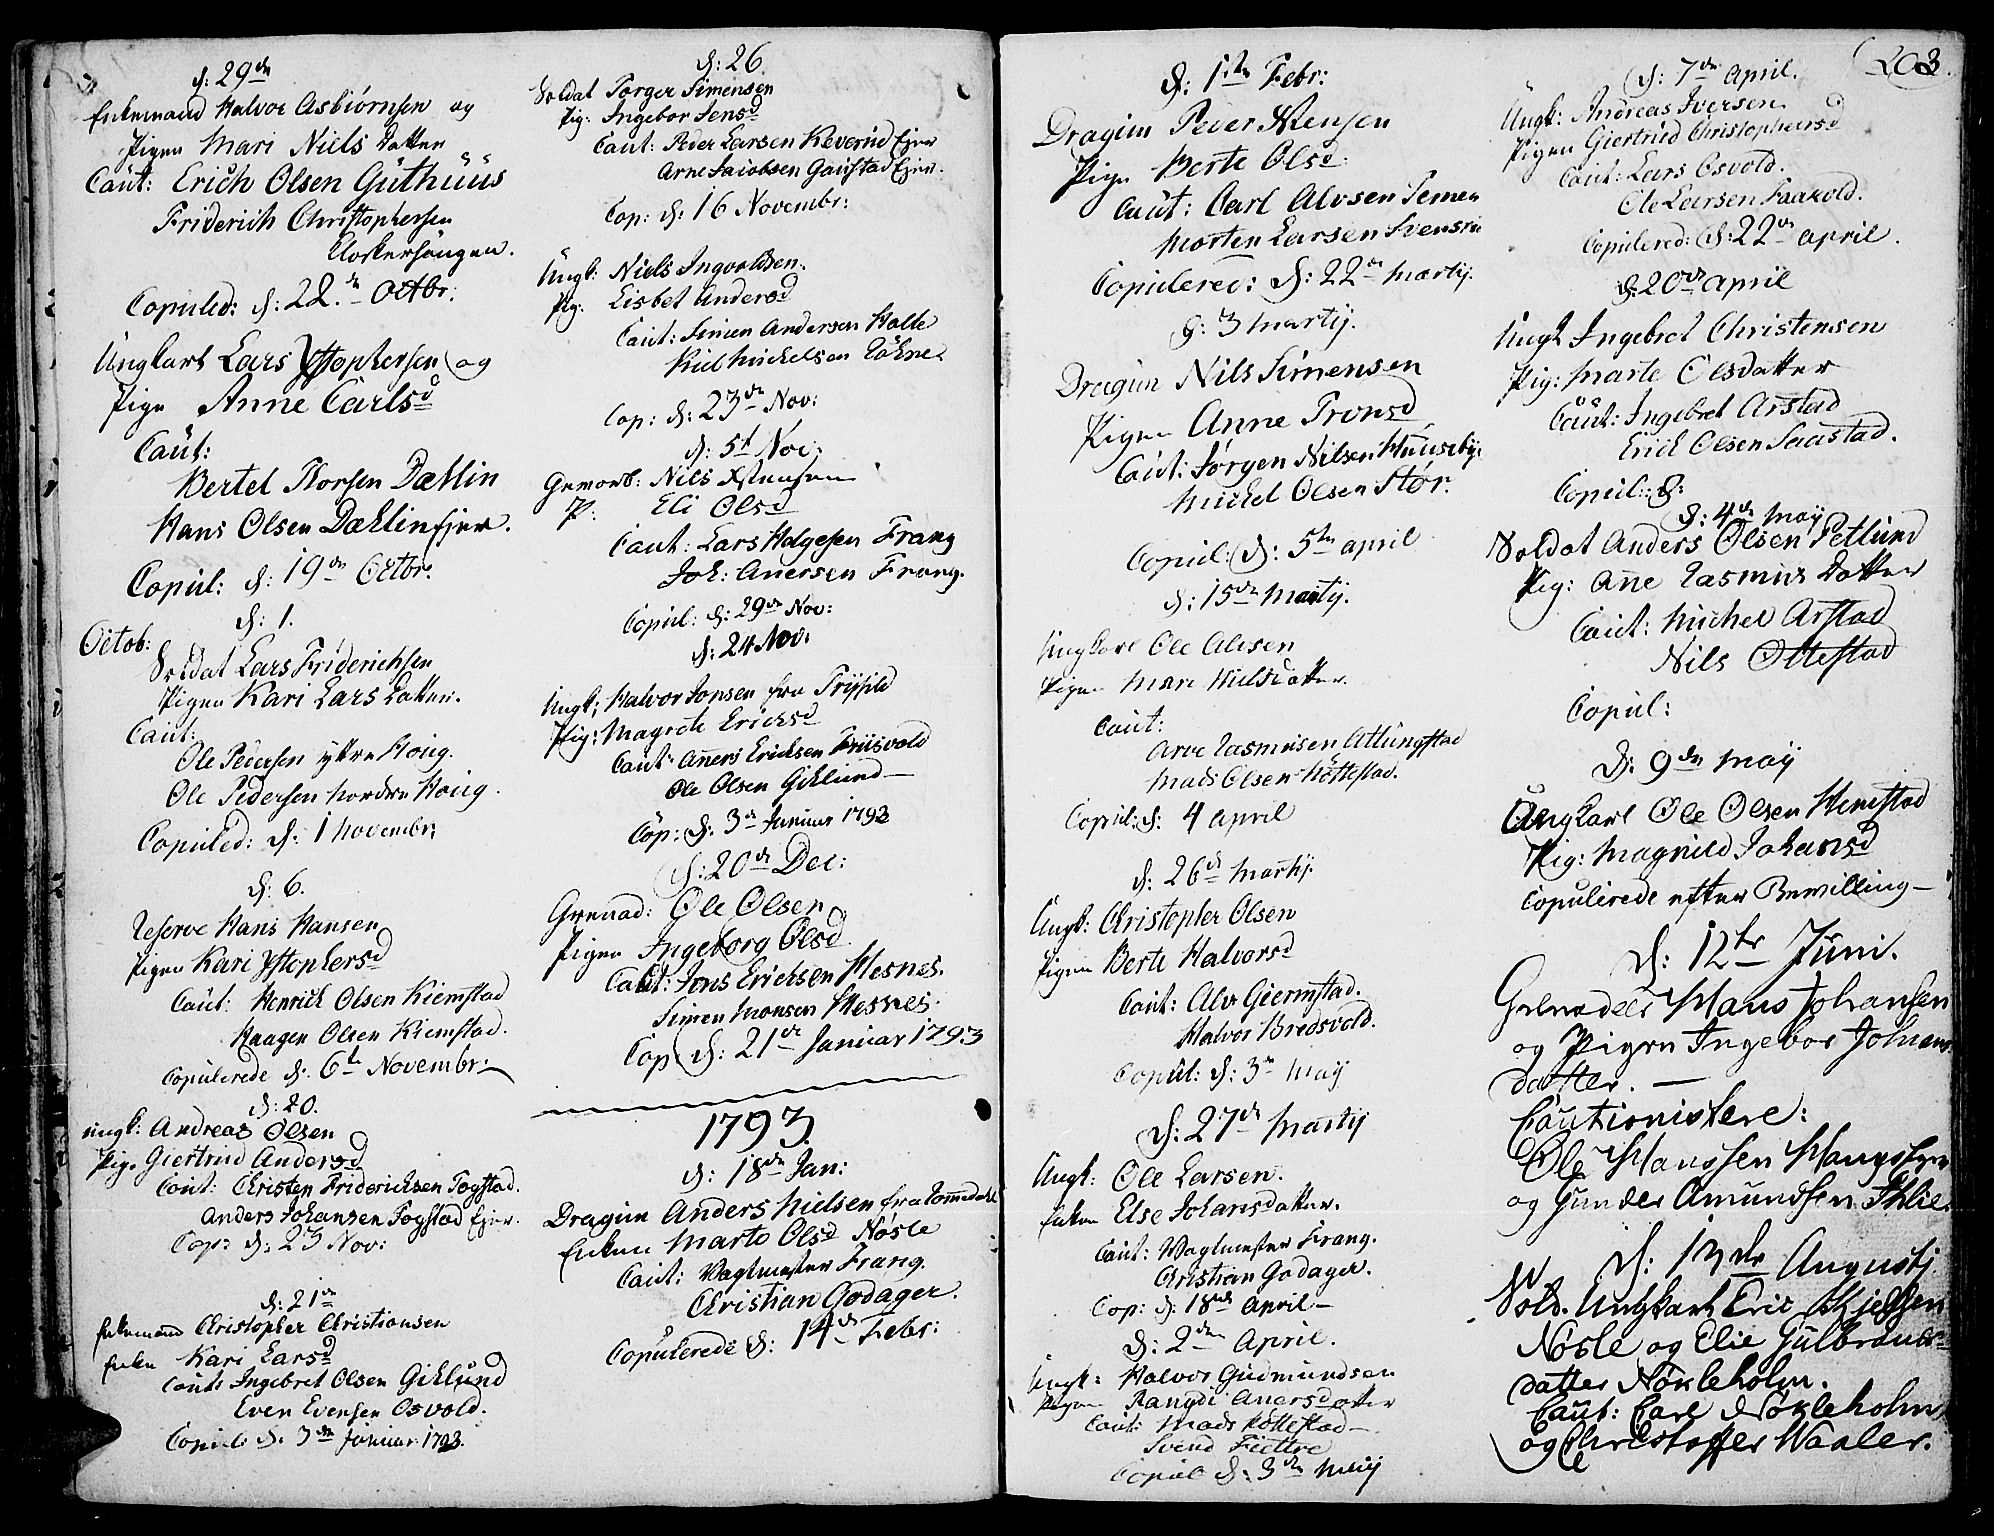 d: 29de
Enkemand Halvor Asbiørnsen og
Pigen Mari Niels Datter
Caut: Erich Olsen Guthuus
Friderich Christophersen
Closterhaugen.
Copuled: d: 22de Octbr:
Ungkarl Lars Xstophersen og
Pige Anne Carlsd
Caut:
Bertel Thorsen Dæhlin
Hans Olsen Dæhlin ejer.
Copul: d: 19de Octbr.
d: 1.
Octob:
Soldat Lars Friderichsen
Pigen Kari Lars Datter.
Caut:
Ole Pedersen yttre Houg.
Ole Pedersen Nordre Houg.
Copuled: d: 1 Novembr:
d: 6.
Reserve Hans Hansen
Pigen Kari Xstophersd
Caut: Henrich Olsen Kiemstad
Haagen Olsen Kiemstad.
Copulerede d. 6te Novembr:
d: 20.
Ungk: Andreas Olsen
Pig. Giertrud Andersd
Caut: Christen Friderichsen Togstad.
Anders Johansen Togstad Ejer.
Cop: d: 23 Nov:
d: 21de
Enkemand Christopher Christiansen
Enke Kari Larsd
Caut: Ingebret Olsen Giklund
Even Evensen Osvold.
Copul: d: 3de Januar 1793.
d: 26
Soldat Torger Simensen
Pig: Ingebor Jensd
Caut: Peder Larsen Keverud Ejer
Arne Jacobsen Gaustad Ejer.
Cop: d: 16 Novembr:
Ungk: Niels Ingvoldsen.
Pig. Lisbet Andersd
Caut: Simen Andersen Holte
Kiel Mickelsen
Cop: d: 23de Nov:
d: 5t Nov:
Gevorb: Nils Xstensen
P: Eli Olsd
Caut: Lars Helgesen Frang
Joh: Anersen Frang.
Copul: d: 29de Nov:
d: 24 Nov:
Ungk: Halvor Jonsen fra Trysild
Pig: Magrete Ericksd
Caut: Aners Ericksen Friisvold
Ole Olsen Giklund
Cop: d: 3de Januar 1793
d: 20de Dec:
Grenad: Ole Olsen
Pigen Ingeborg Olsd
Caut: Jens Ericksen Hesnes.
Simen Monsen Hesnes.
Cop: d: 21de Januar 1793
1793.
d: 18de Jan:
Dragun Anders Nielsen fra Romedahl
Enken Marte Olsd Nøsle
Caut: Vagtmester Frang.
Christian Godager.
Copulerede d: 14de Febr:
203.
d: 1ste Febr:
Dragun Peder
Pige Berte Olsd:
Caut: Carl Alvsen
Morten Larsen
Copulered: d: 22de Martij.
d: 3 Martij.
Dragun Nils Simensen
Pigen Anne Tronsd
Caut: Jørgen Nilsen Huuseby
Mickel Olsen Stør.
Copul: d: 5te April
d: 15de Martij.
Ungkarl Ole Olesen
Pigen Mari Nielsdatter
Caut:
Arve Rasmusen Atlungstad
Mads Olsen Høttestad.
Copul: d: 4 April
d: 26de Martij.
Ungk: Christopher Olsen
Pigen Berte Halvorsd
Caut: Alv Giermstad.
Halvor Bredsvold.
Copul: d: 3de May
d: 27de Martij
Ungk: Ole Larsen.
Enken Else Johansdatter.
Caut: Vagtmester Frang.
Christian Godager.
Cop: d: 18de April
d: 2den April.
Ungk: Halvor Gudmundsen
Pigen Rangdi Anersdatter
Caut: Mads Hottestad
Svend
Copul: d: 3de May
d: 7de April.
Ungk: Andreas Iversen
Pigen Giertrud Christophersd
Caut: Lars Osvold.
Ole Larsen Faakold.
Copulered: d: 22de April.
d: 20de April
Ungk Ingebret Christensen
Pig: Marte Olsdatter
Caut: Ingebret Arstad
Erick Olsen Saastad.
Copul: d:
d: 4de May
Soldat Anders Olsen Petlund
Pig: Ane Rasmus Datter
Caut: Mickel Arstad
Nils Ottestad
Copul:
d: 9de May
Ungkarl Ole Olsen Hemstad
Pig: Magnild Johansd
Copulerede efter Bevilling
d: 12te Juni.
Grenadeer Hans Johansen
og Pigen Ingebor Johans
datter.
Cautionistere:
Ole Hanssen
og Gunder Amundsen Ihlie.
d: 13de Augustj
Sold. Ungkarl Eric Kjelssen
Nøsle og Elie Gulbrands
datter Nøkleholm.
Caut: Carl Nøkleholm
og Christoffer Waaler.